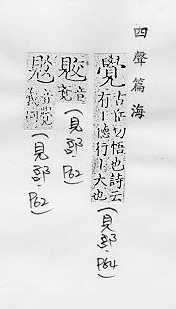 四聲篇海
覺古岳切悟也詩云
有一德行大也
(見部.P64)
覐音
(見部.P62)
音覺
義同
(見部.P62)